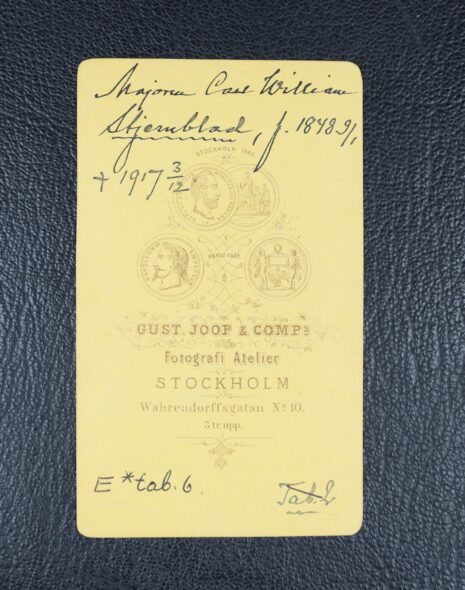 Majoren Carl William
Stjernblad, f. 1848 9/1
+ 1917 3/12
STOCKHOLM 1866
PARIS 1867
GUST. JOOP & COMPS
Fotografi Atelier
STOCKHOLM
Wahrendorffsgatan No 10.
3 tr. upp.
E *tab. 6.
Tab. 2